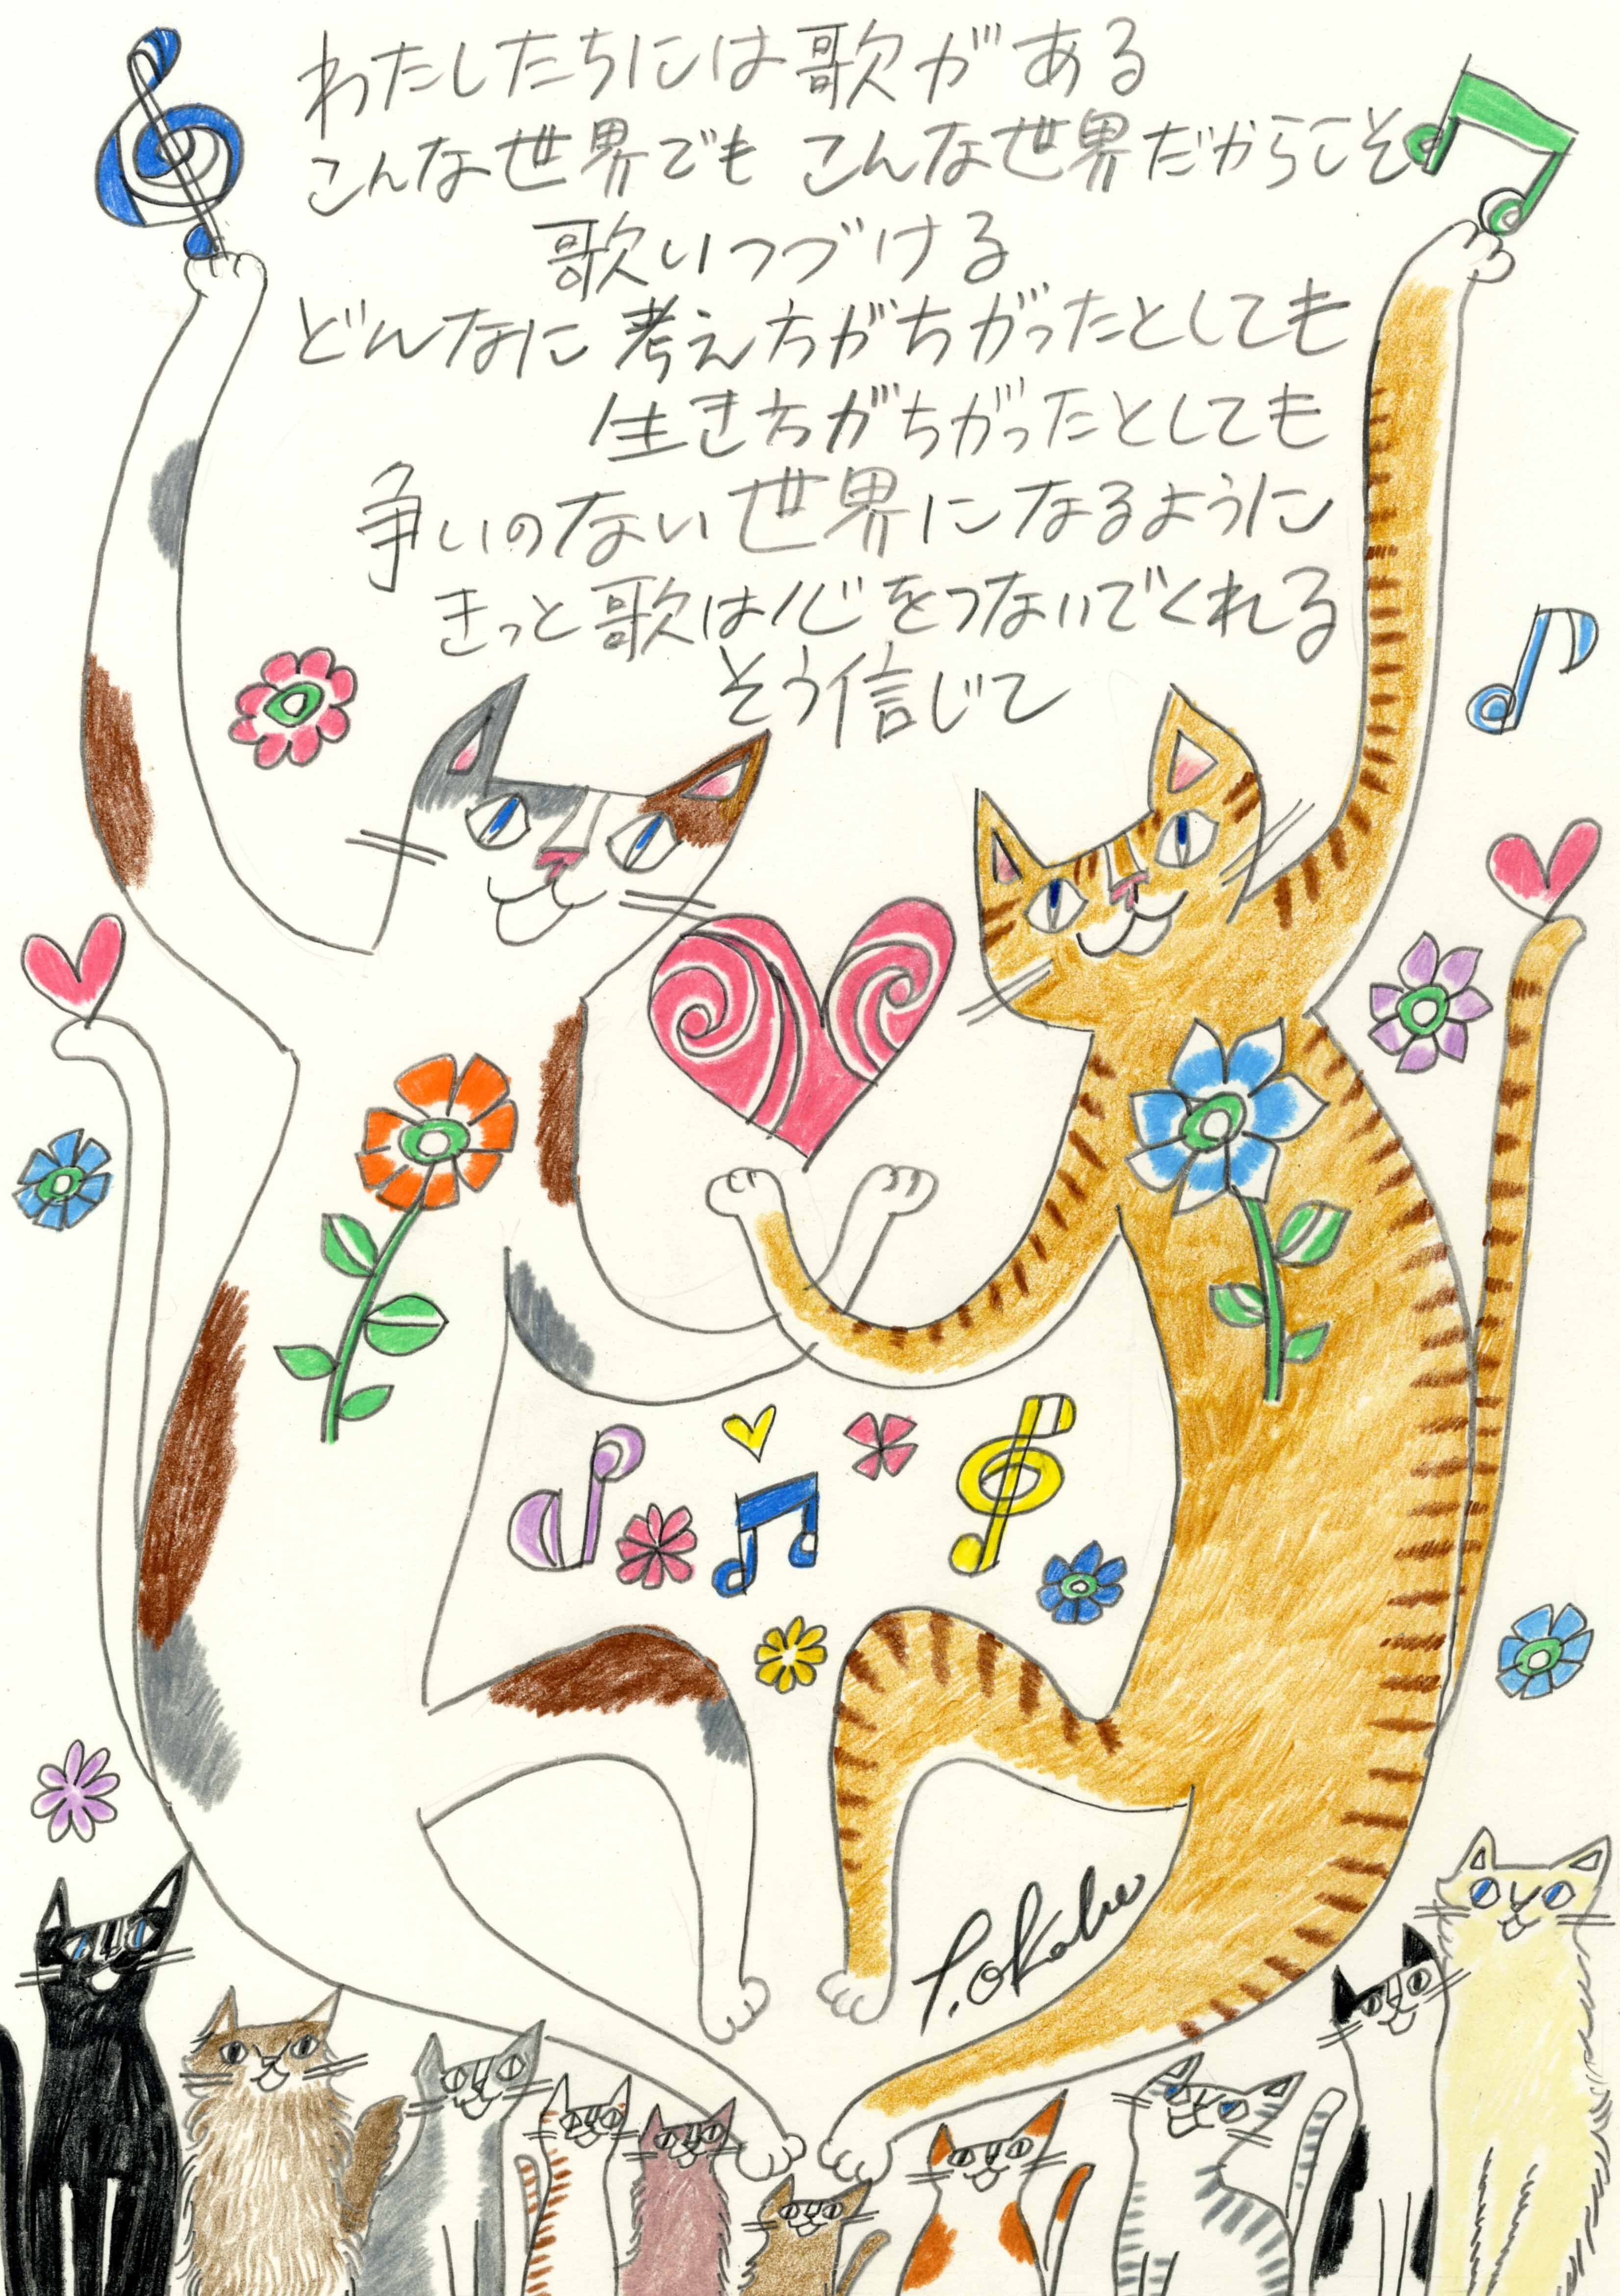 わたしたちには歌がある
こんな世界でも こんな世界だからこそ
歌いつづける
どんなに考え方がちがったとしても
生き方がちがったとしても
争いのない世界になるように
きっと歌は心をつないでくれる
そう信じて
T.Okabe